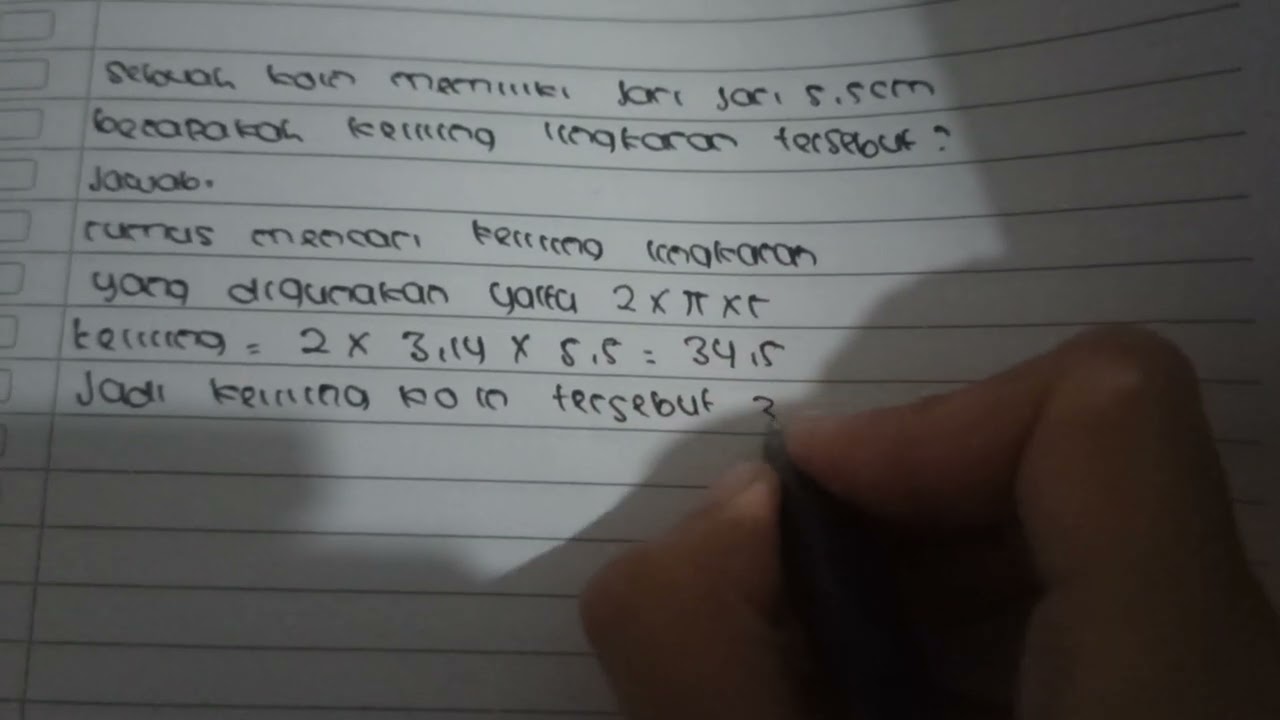 sebuah koin memiliki jari jari 5.5cm
berapakah keliling lingkaran tersebut?
Jawab.
rumus mencari keliling lingkaran
yang digunakan yaitu 2 x π x r
keliling = 2 x 3.14 x 5.5 = 34.5
Jadi keliling koin tersebut 3